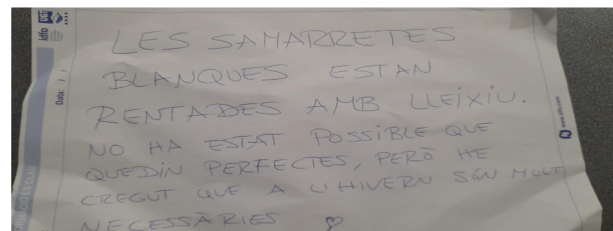 LES SAMARRETES
BLANQUES ESTAN
RENTADES AMB LLEIXIU.
NO HA ESTAT POSSIBLE QUE
QUEDIN PERFECTES, PERÒ HE
CREGUT QUE A L'HIVERN SÓN MOLT
NECESSÀRIES ♡
Data: